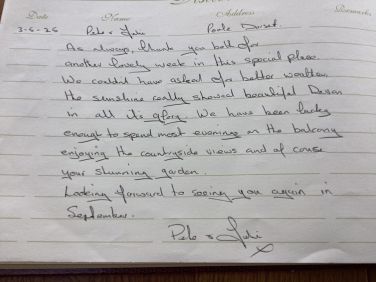 Date Name Address Remarks
3-5-25 Pete & Juli Poole Dorset.
As always, thank you both for
another lovely week in this special place.
We couldnt have asked for better weather,
the sunshine really showed beautiful Devon
in all its glory. We have been lucky
enough to spend most evenings on the balcony
enjoying the countryside views and of course
your stunning garden.
Looking forward to seeing you again in
September.
Pete & Juli
x